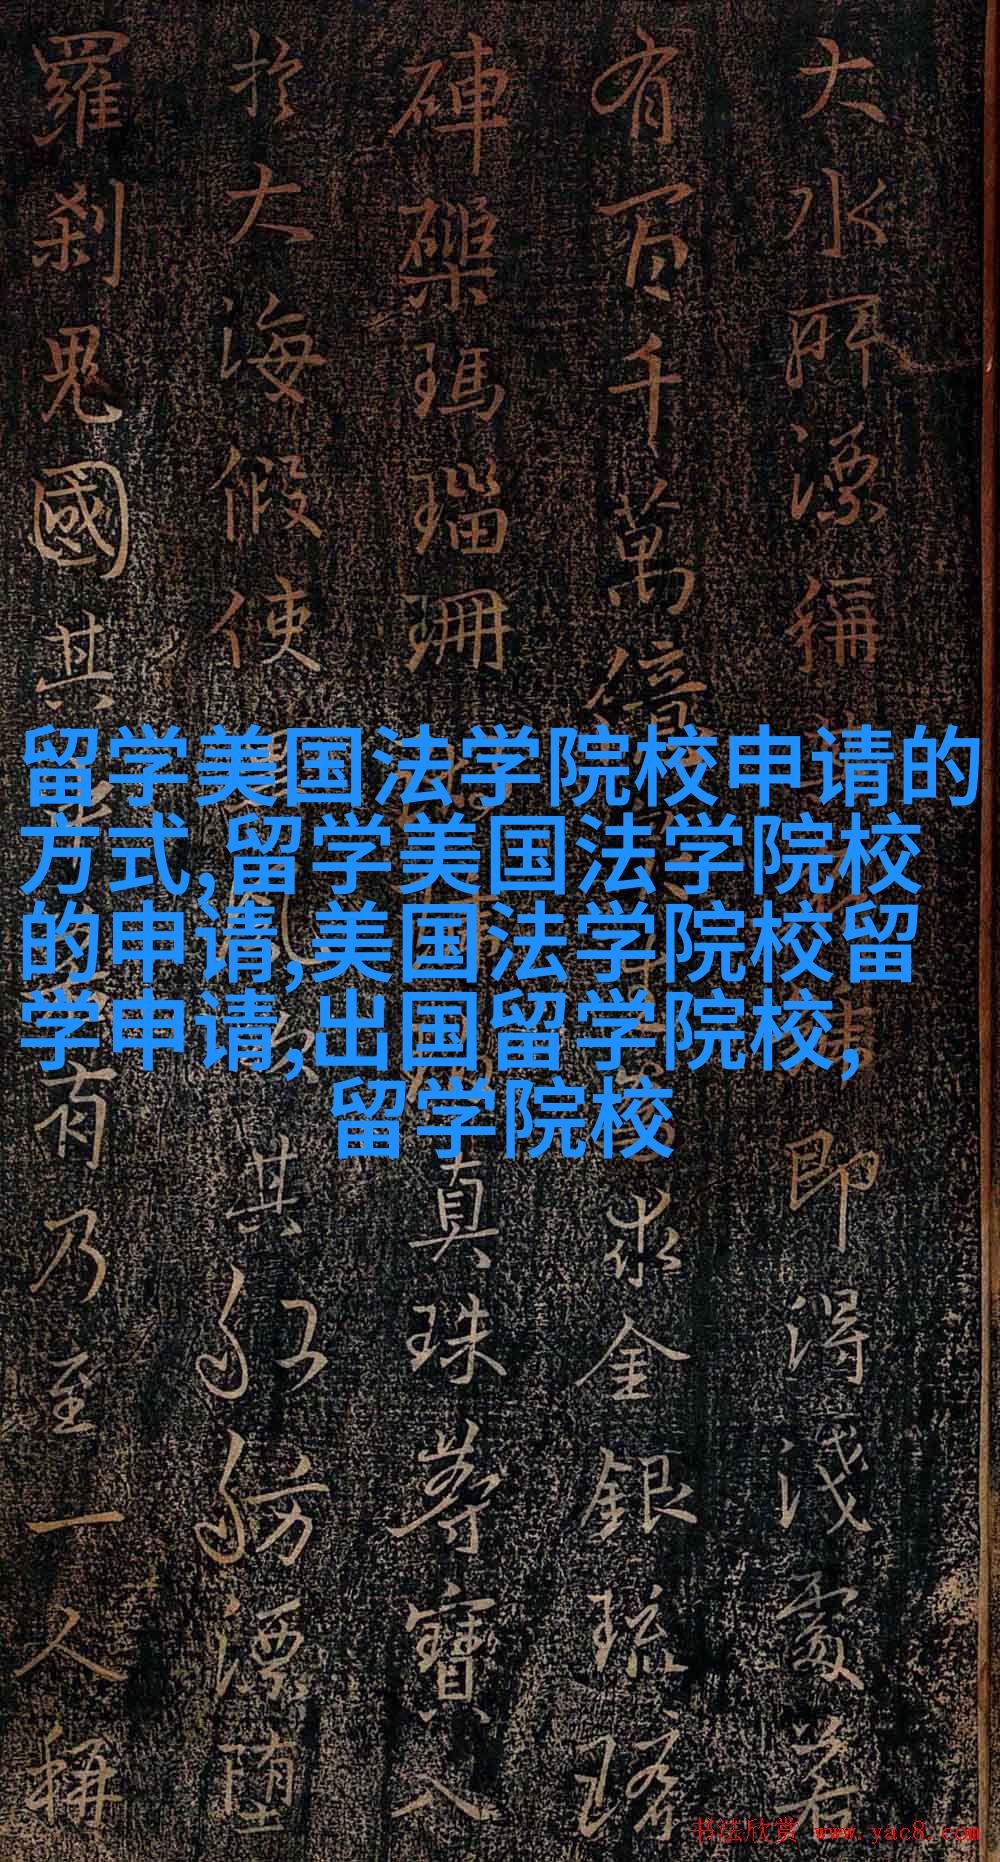 大水所漂稱 即得淺處若
有百千萬億 求金銀琉璃
硨磲瑪瑙珊 真珠等寶入
於大海假使 其船舫漂堕
羅剎鬼國其 有乃至一人稱
留学美国法学院校申请的
方式,留学美国法学院校
的申请,美国法学院校留
学申请,出国留学院校,
留学院校
书法欣赏 www.yac8.com